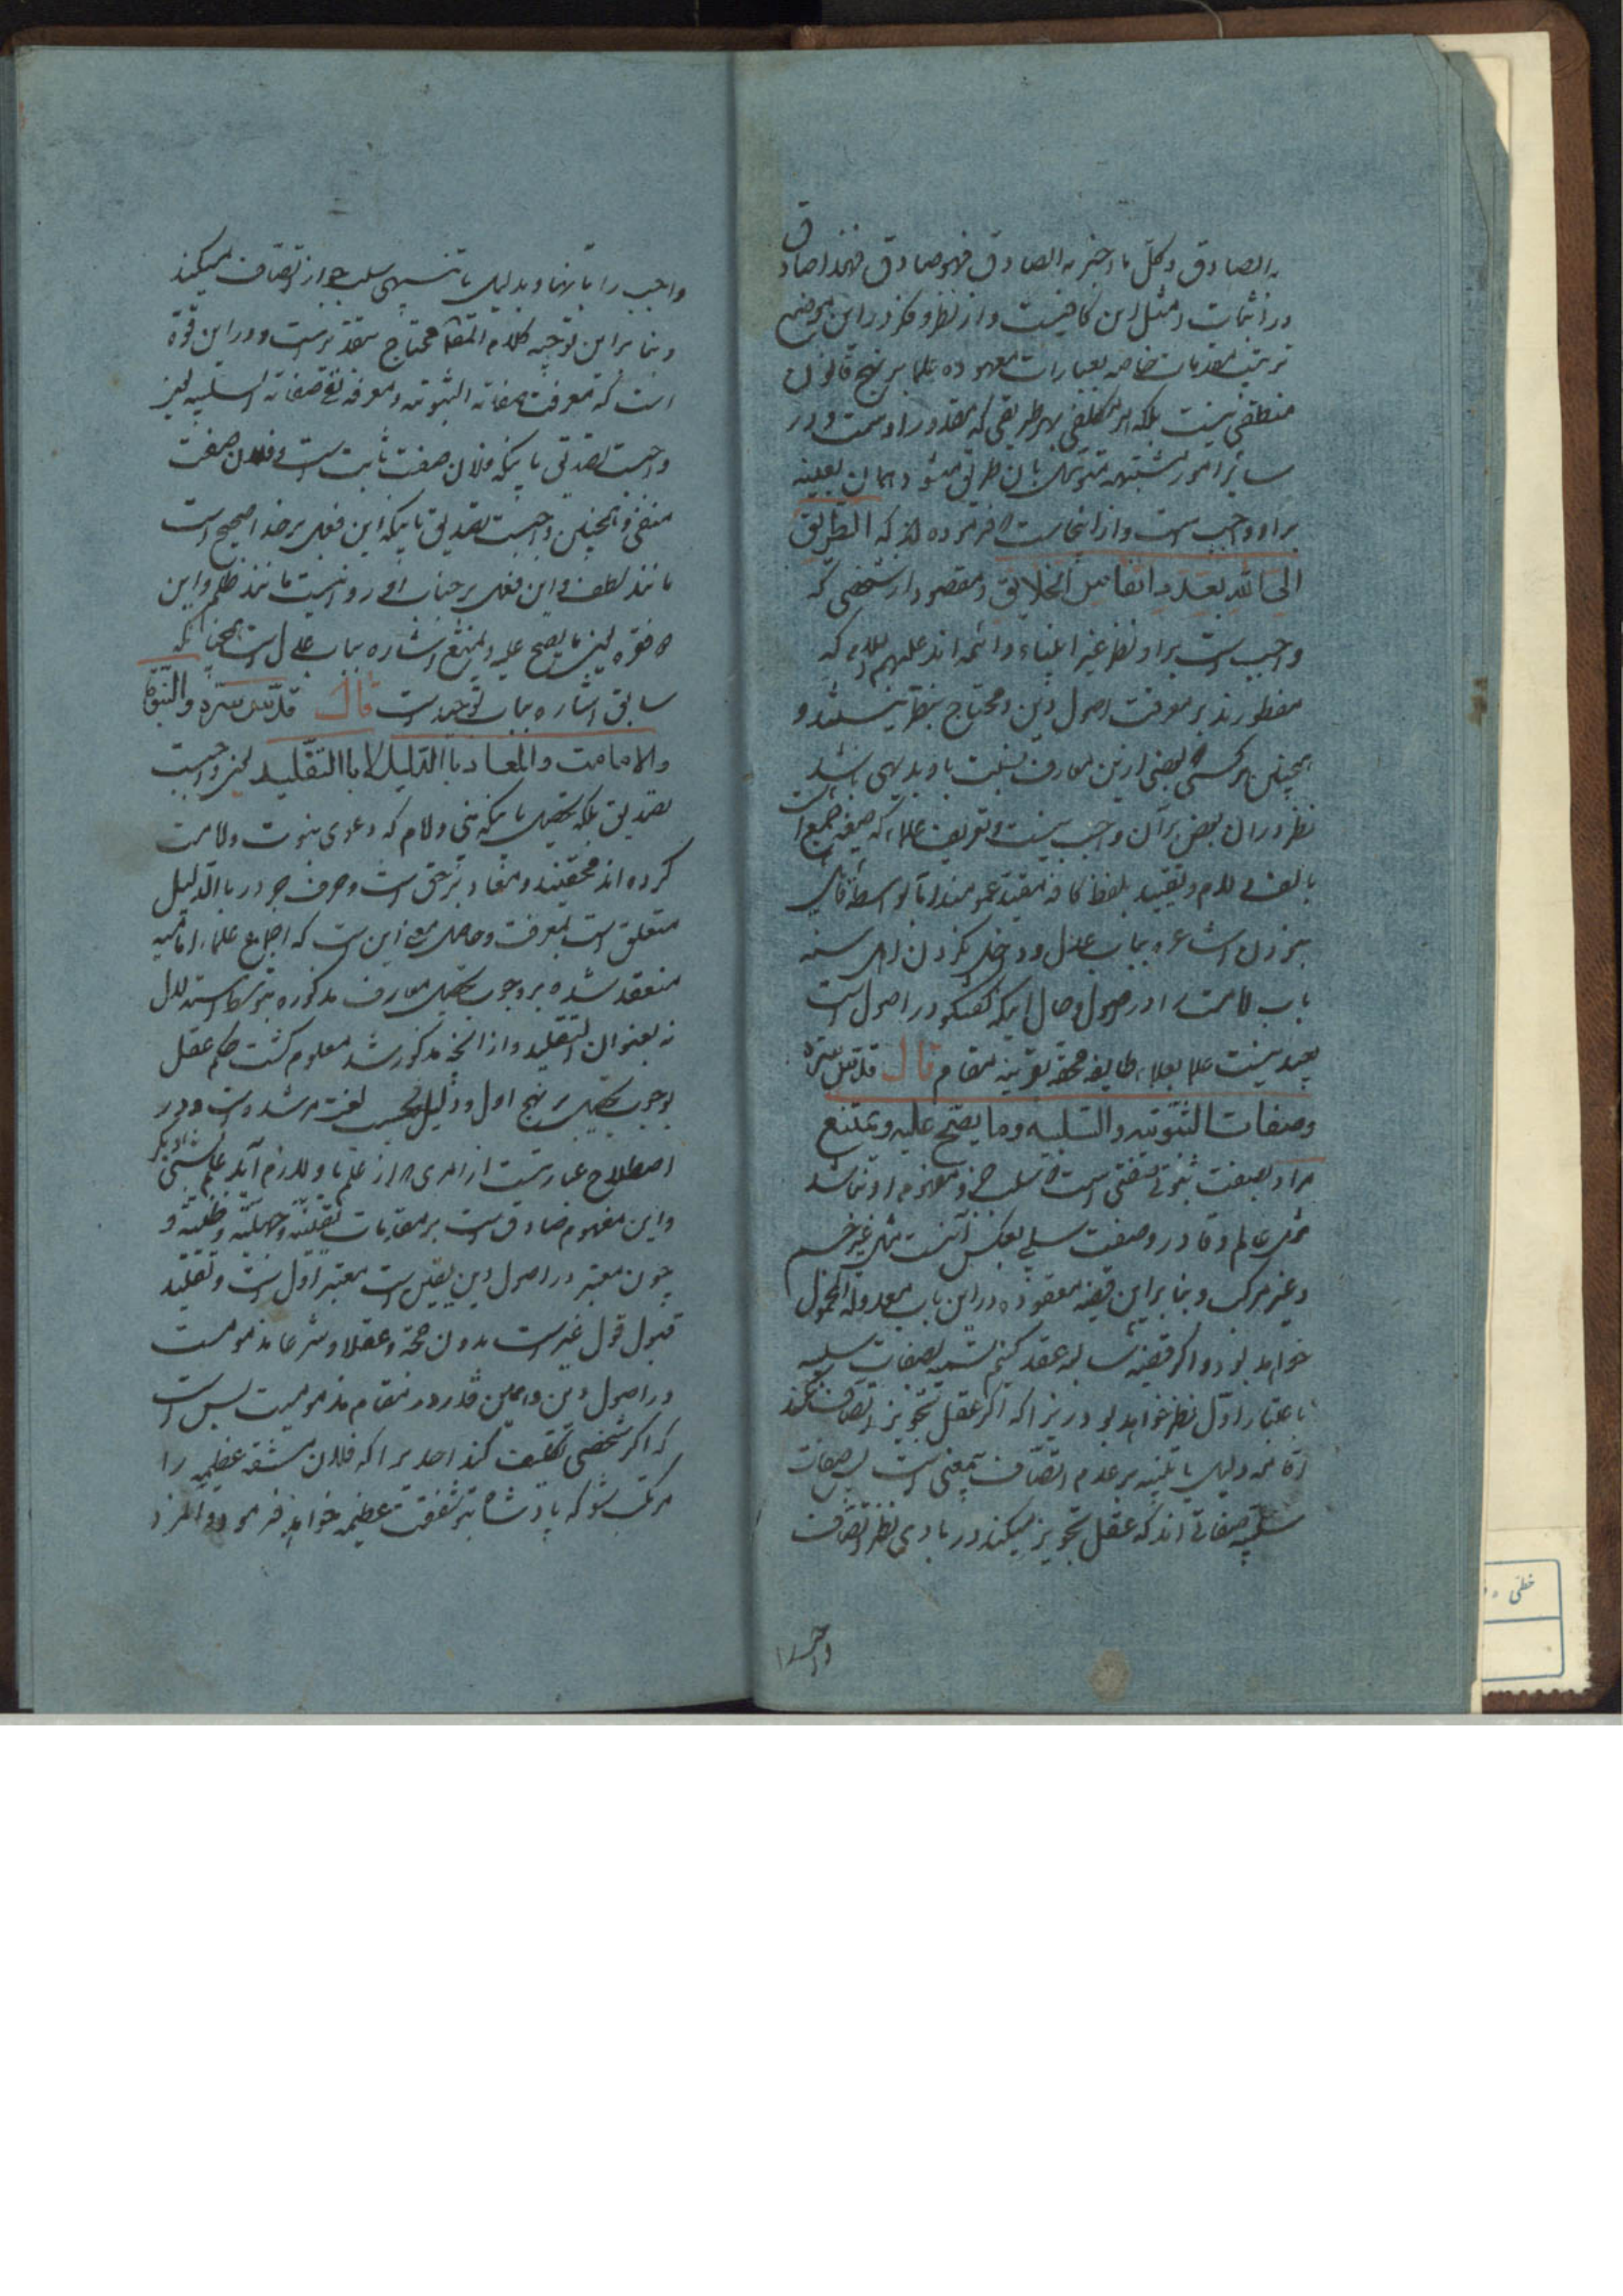 به الصادق و کل ما اخبر به الصادق فهو صادق فهذا صادق
در اثبات مثل این کافیست و از نظر و فکر در این موضع
ترتیب مقدمات خاصه بعبارات معهوده علما بر نهج قانون
منطقی نیست بلکه هر مکلفی بهر طریقی که مقدور اوست و در
سایر امور مشتبهه متوسل بان طریق میشود همان بعینه
بر او واجب است و از اینجاست که فرموده اند که الطرایق
الی الله بعدد انفاس الخلایق و مقصود از شخصی که
واجب است بر او نظر غیر انبیاء و ائمه اند علیهم السلام که
مفطورند بر معرفت اصول دین و محتاج بنظر نیستند و
همچنین هر کسی که بعضی ازین معارف نسبت باو بدیهی باشد
نظر در ان بعض بر آن واجب نیست و تعریف علماء که صیغه جمع است
بالف و لام و تقیید بلفظ کافه مفید عموم‌ند
نبردن اشاعره بباب عدل و داخل نکردن اهل سنه
باب امامت را در اصول و حال اینکه گفتگو در اصول است
بعید نیست علما بعلماء طایفه محقه بقرینه مقام قال قدس سره
وصفات الثبوتیه والسلبیه وما یصح علیه ویمتنع
مراد بصفت ثبوتی صفتی است که سلب جزو مفهوم او نباشد
مثل عالم و قادر و صفت سلبی بعکس آنست مثل غیر جسم
و غیر مرکب و بنا بر این قضیه معقوده در این باب معدولة المحمول
خواهد بود و اگر قضیه سالبه عقد کنیم تسمیه بصفات سلبیه
باعتبار اول نظر خواهد بود زیرا که اگر عقل تجویز اتصاف نکند
اقامه دلیل یا تنبیه بر عدم اتصاف بیمعنی است پس صفات
سلبیه صفاتی اند که عقل تجویز میکند در بادی نظر اتصاف
واجب را
واجب را بانها و بدلیل یا تنبیهی سلب جواز اتصاف میکند
و بنا بر این توجیه کلام المقام محتاج بتقدیر است و در این قوه
است که معرفت صفاته الثبوتیه و معرفة نفی صفاته السلبیه یعنی
واجبست تصدیق باینکه فلان صفت ثابت است و فلان صفت
منفی و همچنین واجبست تصدیق باینکه این فعل بر خدا صحیح است
مانند لطف و این فعل بر جناب او روا نیست مانند ظلم و این
فقره یعنی ما یصح علیه و یمتنع اشاره بباب عدل است همچنانکه
سابق اشاره بباب توحید است قال قدس سره والنبوة
والامامت والمعاد باالدلیل لا باالتقلید یعنی واجبست
تصدیق بلکه تحصیل باینکه نبی و امام که دعوی نبوت و امامت
کرده اند محقیند و معاد نیز حق است و حرف جر در باالدلیل
متعلق است بمعرفت و حاصل معنی این است که اجماع علماء امامیه
منعقد شده بر وجوب تحصیل معارف مذکوره بنوع استدلال
نه بعنوان التقلید و از انچه مذکور شد معلوم گشت حکم عقل
بوجوب تحصیل بر نهج اول و دلیل بحسب لغت مرشد است و در
اصطلاح عبارتست از امری که از علم باو لازم آید علم بشیئ دیگر
و این مفهوم صادق است بر مقدمات یقینیه و جهلیه و ظنیه و
چون معتبر در اصول دین یقین است معتبر اول است و تقلید
قبول قول غیر است بدون حجة و عقلا و شرعا مذمومست
در اصول دین و همین قدر در مقام مذمومیت بس است
که اگر شخصی تکلیف کند احدیرا که فلان مشقه عظیمه را
مرتکب شو که پادشاه بتو شفقت عظیمه خواهد فرمود و المزد